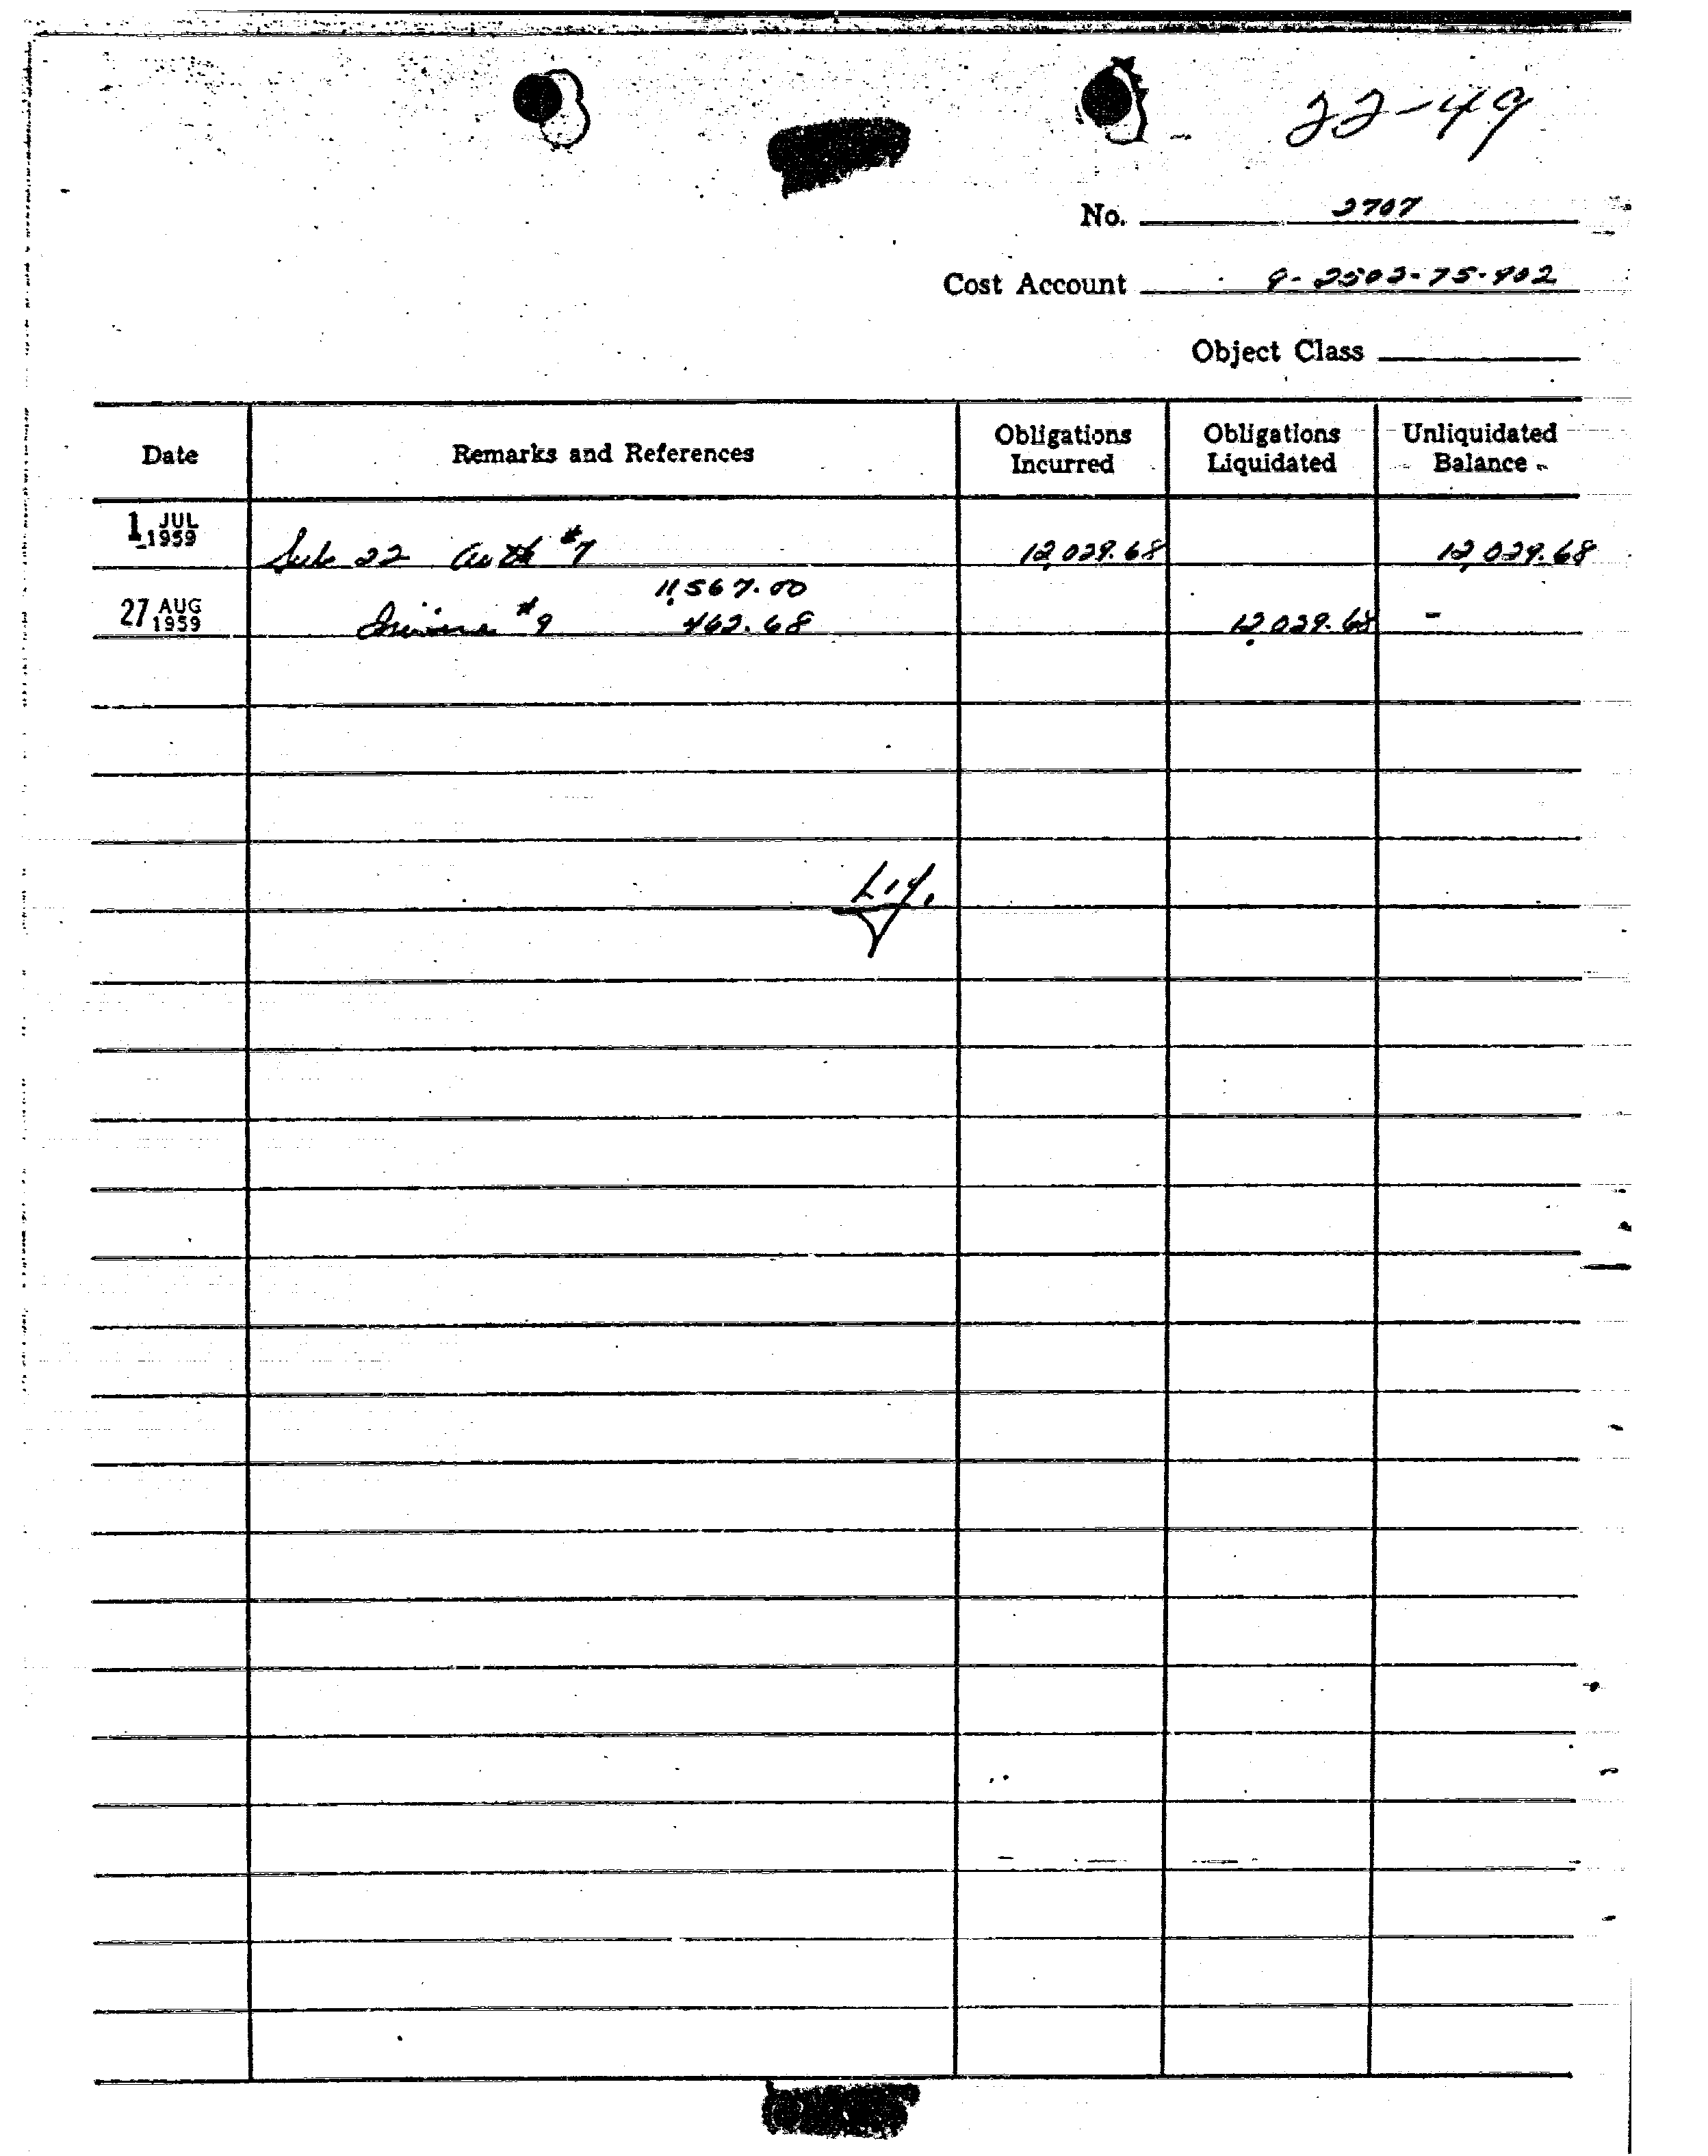 22-49
No. 2707
Cost Account 9-2502-75-902
Object Class
Date Remarks and References Obligations Incurred Obligations Liquidated Unliquidated Balance
1 JUL 1959 Sub 22 Auth #7 12,029.68 12,029.68
11,567.00
27 AUG 1959 Invoice #9 462.68 12,029.68 -
Liq.